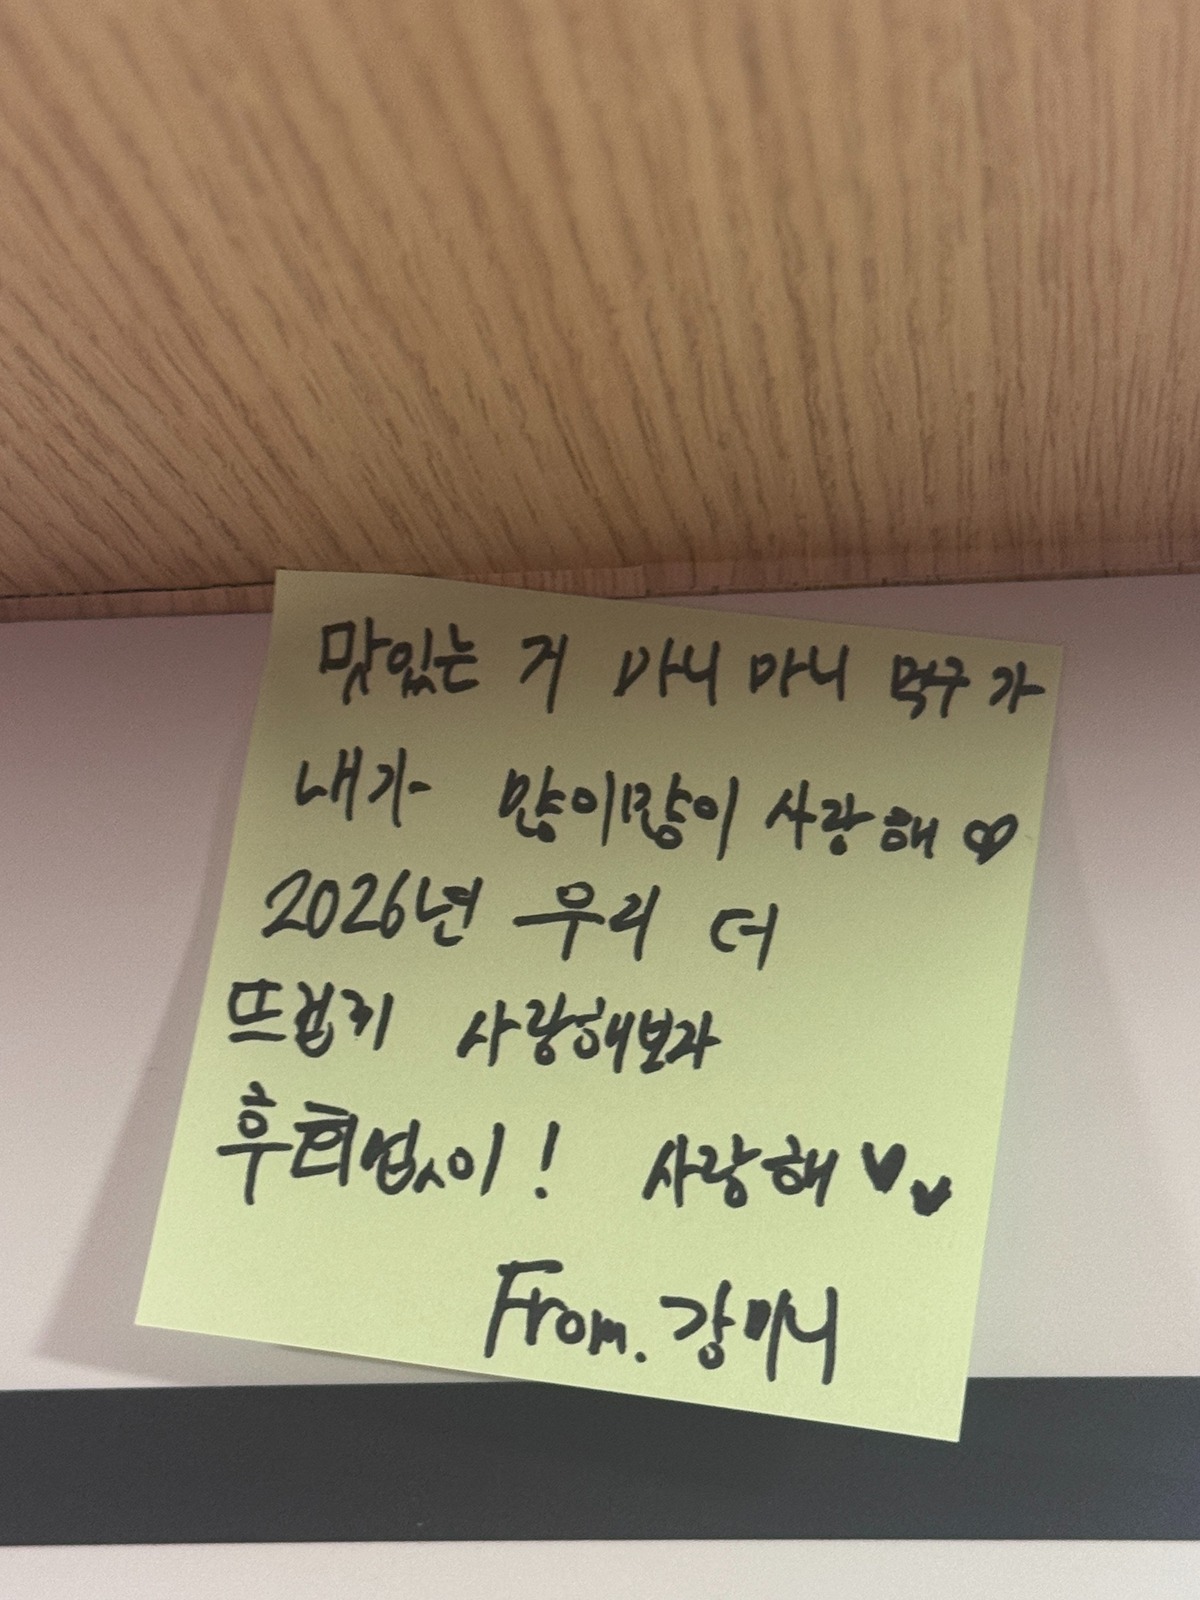 맛있는 거 마니 마니 먹구 가
내가 많이많이 사랑해 ♡
2026년 우리 더
뜨겁게 사랑해보자
후회없이! 사랑해 ♥♥
From. 강미니